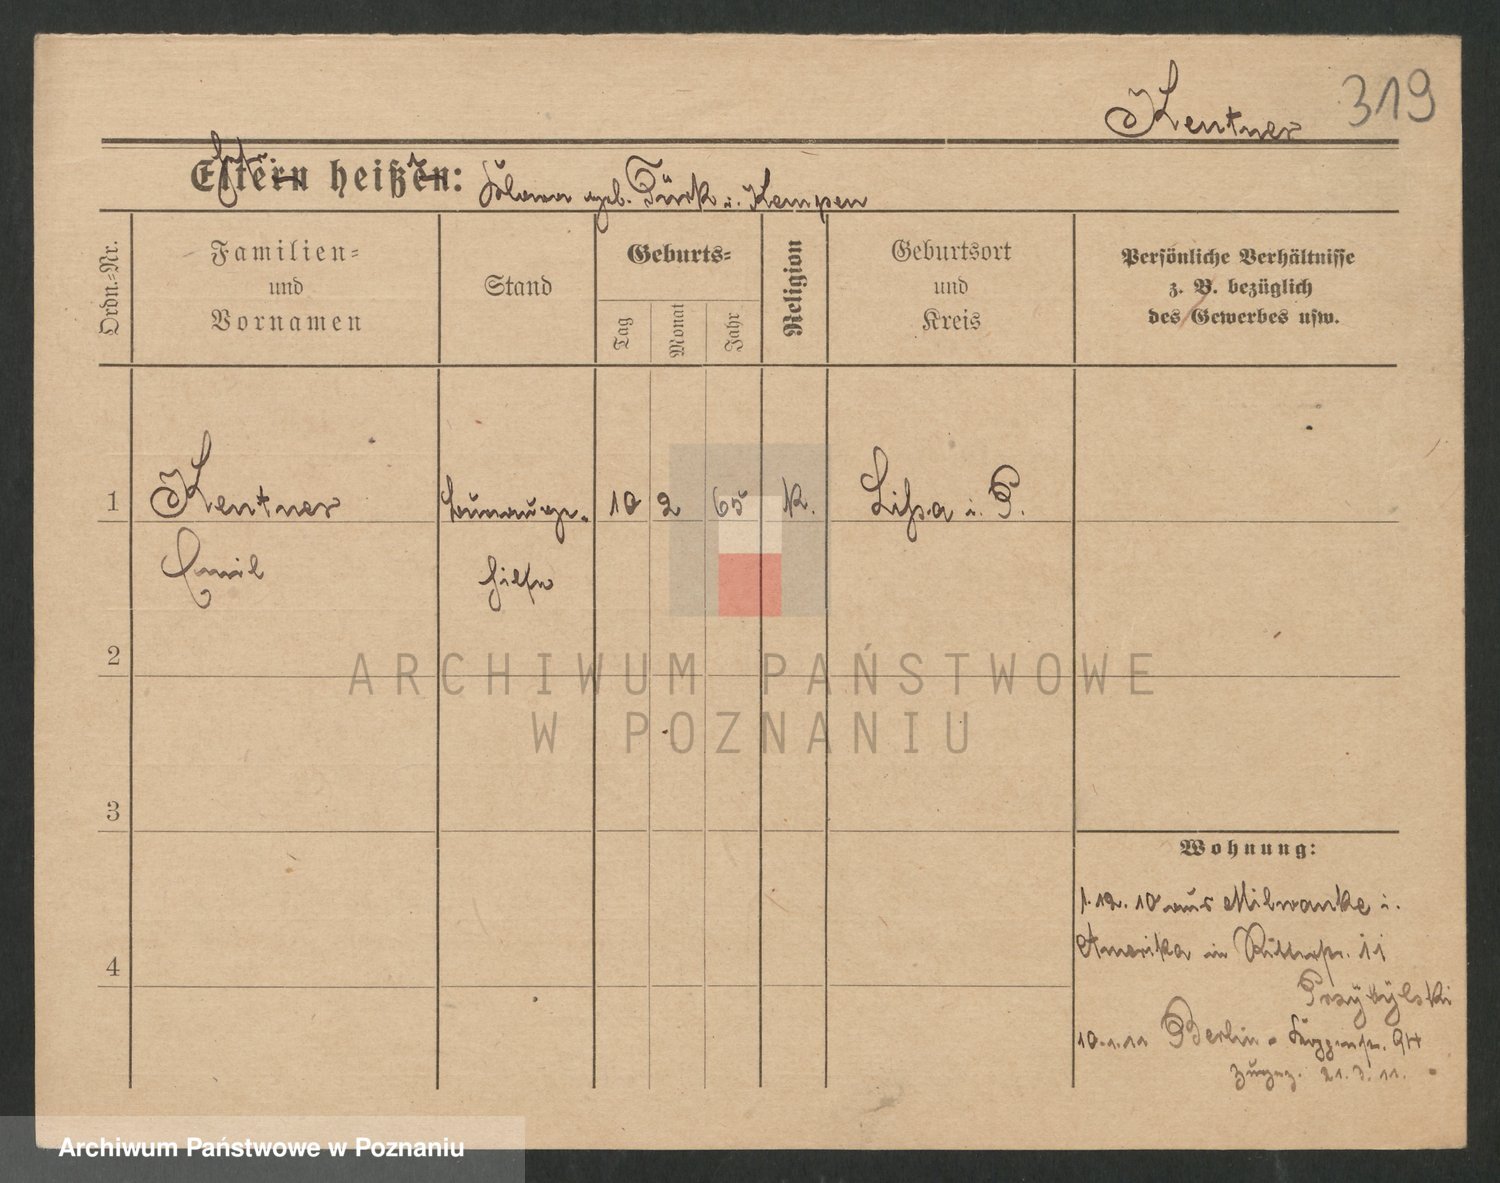 Kentner 319
Eltern heißen: geb. Türk i. Kempen
Ordn.-Nr.
Familien-
und
Vornamen
Stand
Geburts-
Tag
Monat
Jahr
Religion
Geburtsort
und
Kreis
Persönliche Verhältnisse
z. B. bezüglich
des Gewerbes usw.
1 Kentner 10 2 65 K. Lissa i. P.
Emil hilfe
2
ARCHIWUM PAŃSTWOWE
W POZNANIU
3
Wohnung:
1.12.10 aus Milwauke i.
4 Amerika in Ritterstr. 11
Przybylski
10.1.11 Berlin
21.3.11.
Archiwum Państwowe w Poznaniu